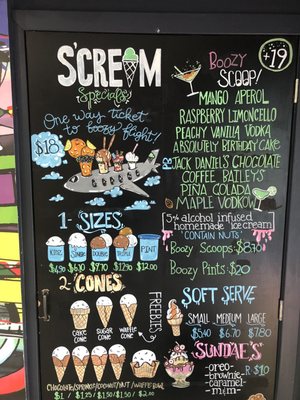 S'CREAM
Specials
One way ticket
to boozy flight
$18
1- SIZES
KIDZ
SINGLE
DOUBLE
TRIPLE
PINT
$4.90
$6.10
$7.70
$12.90
$12.00
2- CONES
CAKE CONE
SUGAR CONE
WAFFLE CONE
FREEBIES
$1 / $1.25 / $1.50 / $1.50 / $2.00
+19
BOOZY
SCOOP!
MANGO APEROL
RASPBERRY LIMONCELLO
PEACHY VANILLA VODKA
ABSOLUTELY BIRTHDAY CAKE
JACK DANIEL'S CHOCOLATE
COFFEE BAILEYS
PINA COLADA
MAPLE VODKA
5% alcohol infused
homemade icecream
"CONTAIN NUTS"
Boozy Scoops $8.70
Boozy Pints $20
SOFT SERVE
SMALL MEDIUM LARGE
$5.40 $6.70 $7.80
SUNDAE'S
-oreo-
-brownie-
-caramel-
-m&m-
$10